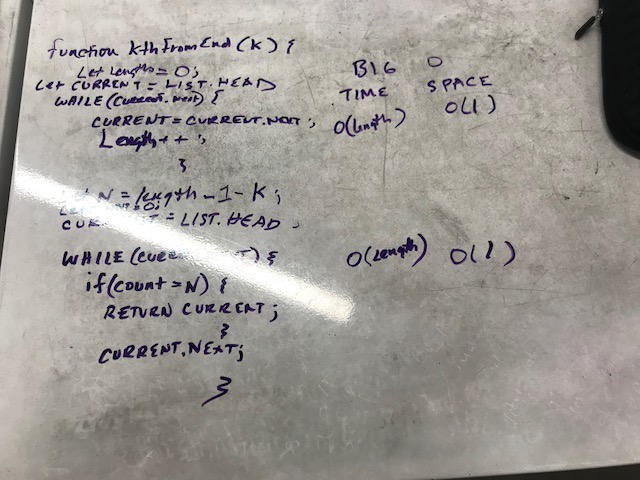 function kthFromEnd(k) {
Let Length = 0;
Let CURRENT = LIST.HEAD
WHILE (CURRENT.next) {
CURRENT = CURRENT.NEXT;
Length++;
}
N = length - 1 - K;
= 0;
= LIST.HEAD
WHILE ( ) {
if(count = N) {
RETURN CURRENT;
}
CURRENT.NEXT;
}
BIG O
TIME SPACE
O(length) O(1)
O(Length) O(1)